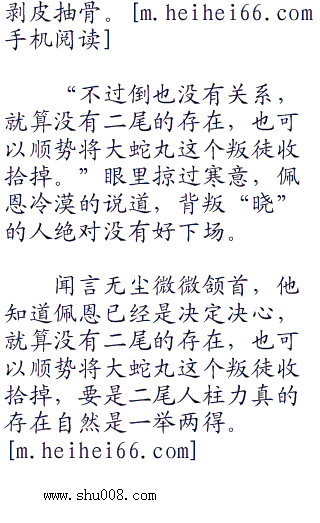 剥皮抽骨。[m.heihei66.com
手机阅读]
“不过倒也没有关系，
就算没有二尾的存在，也可
以顺势将大蛇丸这个叛徒收
拾掉。”眼里掠过寒意，佩
恩冷漠的说道，背叛“晓”
的人绝对没有好下场。
闻言无尘微微颔首，他
知道佩恩已经是决定决心，
就算没有二尾的存在，也可
以顺势将大蛇丸这个叛徒收
拾掉，要是二尾人柱力真的
存在自然是一举两得。
[m.heihei66.com]
www.shu008.com